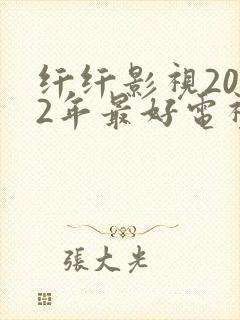 纤纤影視20
2年最好電視
張大光